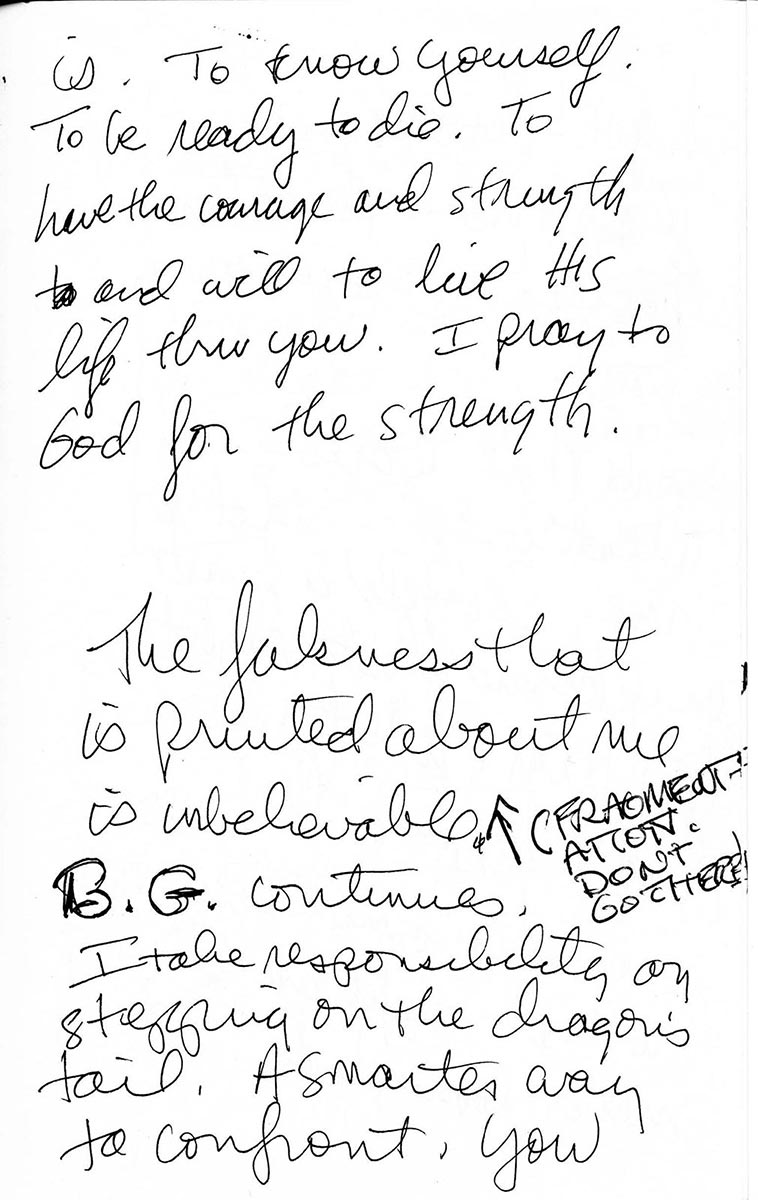 is. To know yourself.
To be ready to die. To
have the courage and strength
to and will to live His
life thru you. I pray to
God for the strength.
The falseness that
is printed about me
is unbelievable.
(FRAGMENT-
ATION.
DON'T
GO THERE!
B.G. continues.
I take responsibility on
stepping on the dragon's
tail. A smarter way
to confront. You